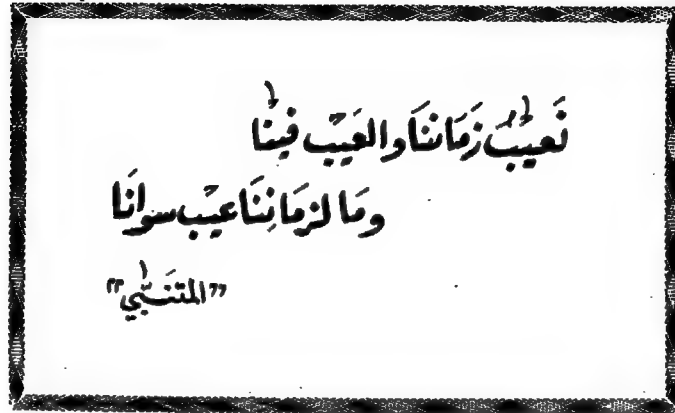 نَعيبُ زَمَاننَا والعَيْب فينْا
ومَا لزمَانِنَا عيْب سوانَا
"المتنَبّي"